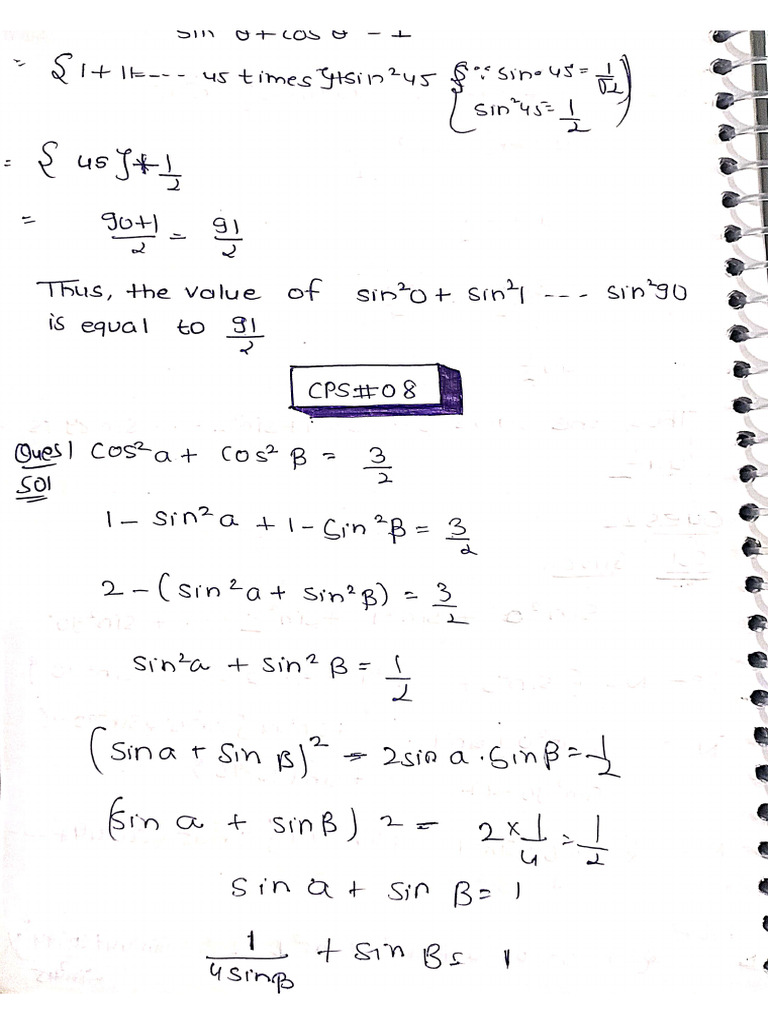 sin θ + cos θ - 1
= {1 + 1+--- 45 times}+sin²45 {∵ sin 45 = 1/√2
sin²45 = 1/2)
= {45}+1/2
= 90+1/2 = 91/2
Thus, the value of sin²0 + sin²1 --- sin²90
is equal to 91/2
CPS#08
Ques1 cos²a + cos² β = 3/2
Sol
1 - sin²a + 1 - sin²β = 3/2
2 - (sin²a + sin²β) = 3/2
sin²a + sin² β = 1/2
(sin a + sin β)² - 2sin a · sin β = 1/2
(sin a + sin β) 2 - 2 × 1/4 = 1/2
sin a + sin β = 1
1/4sinβ + sin β = 1